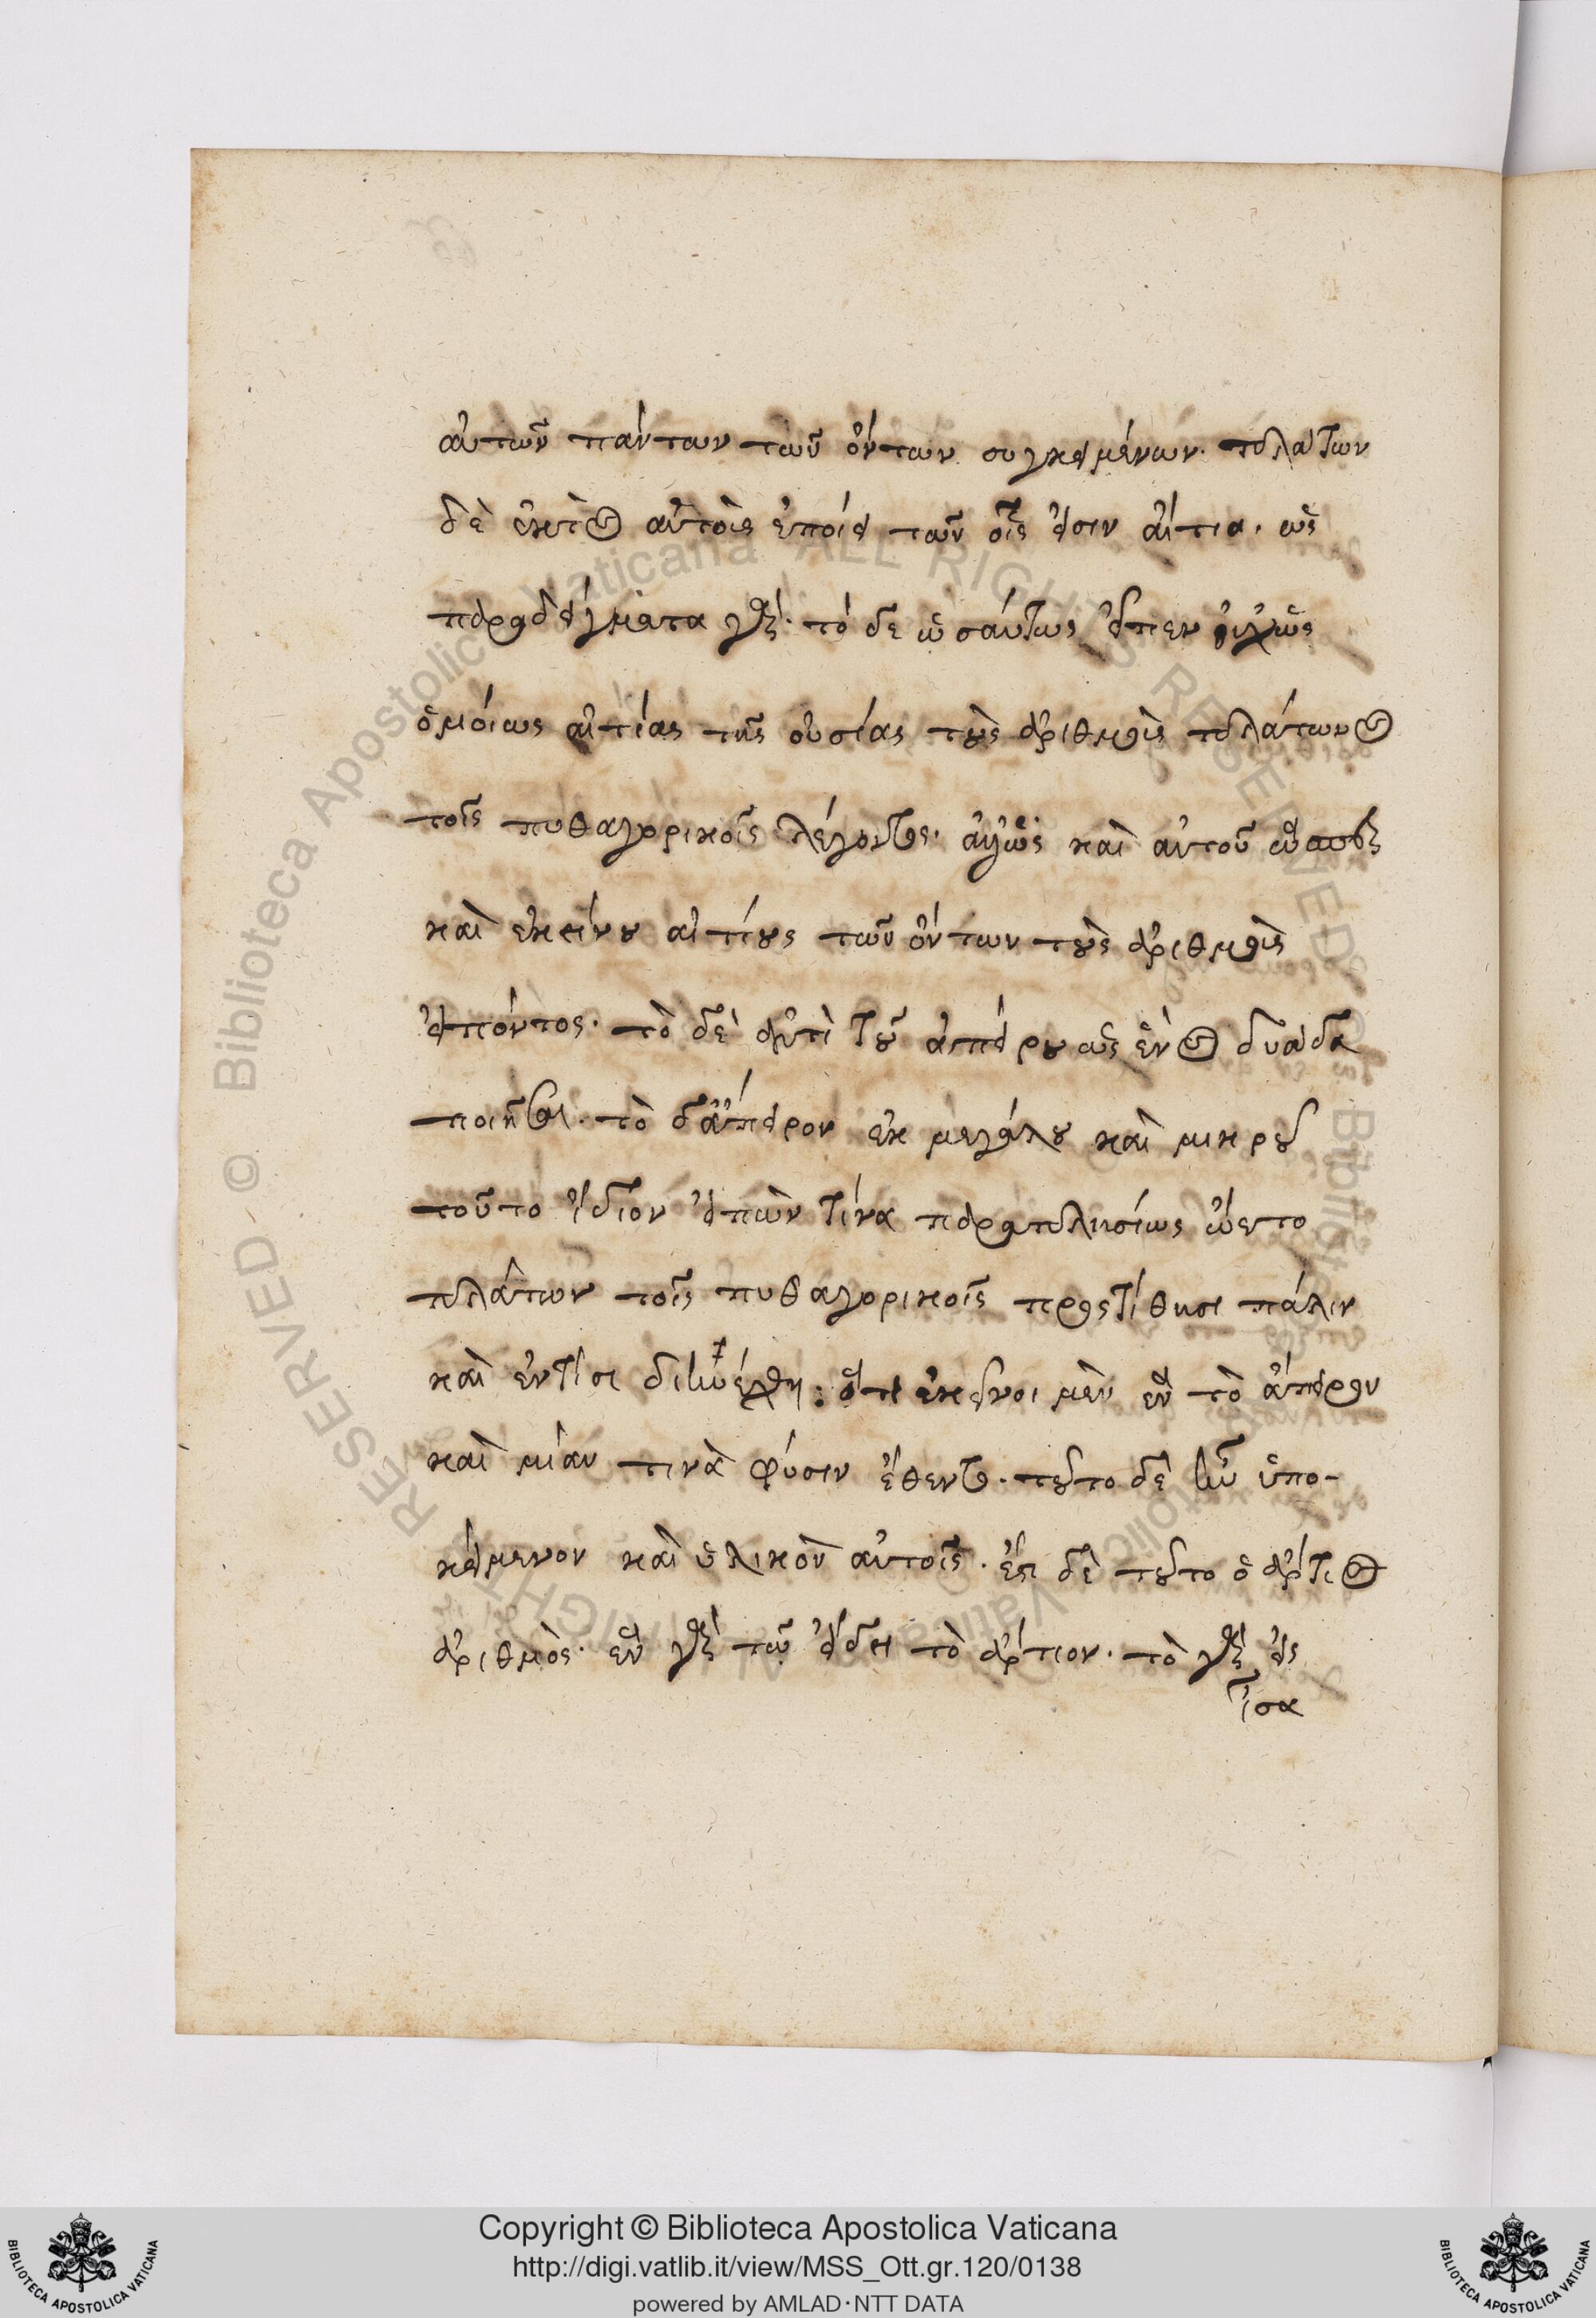 αὐτῶν πάντων τῶν ὄντων συγκειμένων. πλάτων
δὲ ἐκτὸς αὐτοῖς ἐποίει τῶν οἷς εἰσιν αἴτια. ὡς
παραδείγματα γάρ. τό δε ὡσαύτως εἶπεν οὐχ ὡς
ὁμοίως αἰτίας τῆς οὐσίας τοὺς ἀριθμοὺς πλάτωνος
τοῖς πυθαγορικοῖς λέγοντος. ἀλλ' ὡς καὶ αὐτοῦ
καὶ ἐκείνου αἰτίους τῶν ὄντων τοὺς ἀριθμοὺς
εἰπόντος. τὸ δὲ ἀντὶ τοῦ ἀπείρου ὡς ἑνὸς δυάδα
ποιῆσαι. τὸ δ' ἄπειρον ἐκ μεγάλου καὶ μικροῦ
τοῦτο ἴδιον εἰπὼν τίνα παραπλησίως ᾤετο
πλάτων τοῖς πυθαγορικοῖς προστίθησι πάλιν
καὶ ἐν τίσι διηνέχθη: ὅτι ἐκεῖνοι μὲν ἓν τὸ ἄπειρον
καὶ μίαν τινὰ φύσιν ἔθεντο. τοῦτο δὲ ἦν ὑπο-
κείμενον καὶ ὑλικὸν αὐτοῖς. ἔστι δὲ τοῦτο ὁ ἄρτιος
ἀριθμός. ἓν γὰρ τῷ εἴδει τὸ ἄρτιον. τὸ γὰρ εἰς
ἴσα
Copyright © Biblioteca Apostolica Vaticana
http://digi.vatlib.it/view/MSS_Ott.gr.120/0138
powered by AMLAD·NTT DATA